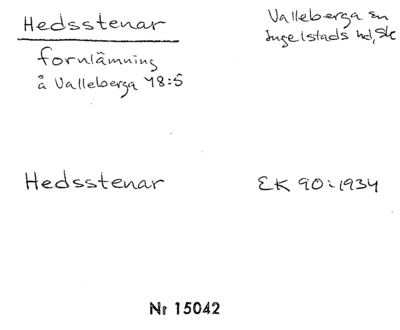 Hedsstenar
fornlämning
å Valleberga 48:5
Valleberga sn
Ingelstads hd, Sk
Hedsstenar
EK 90:1934
Nr 15042